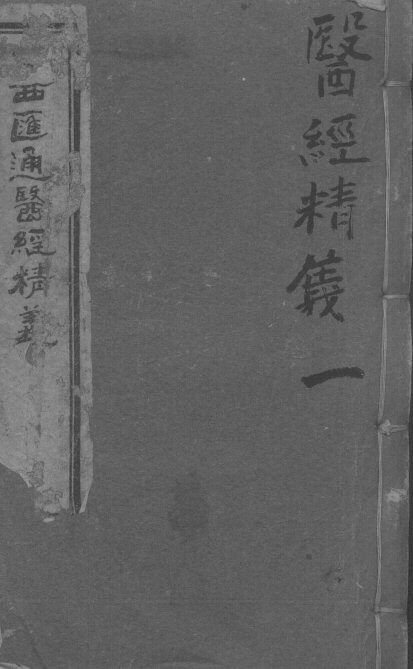 醫經精義一
西匯通醫經精義